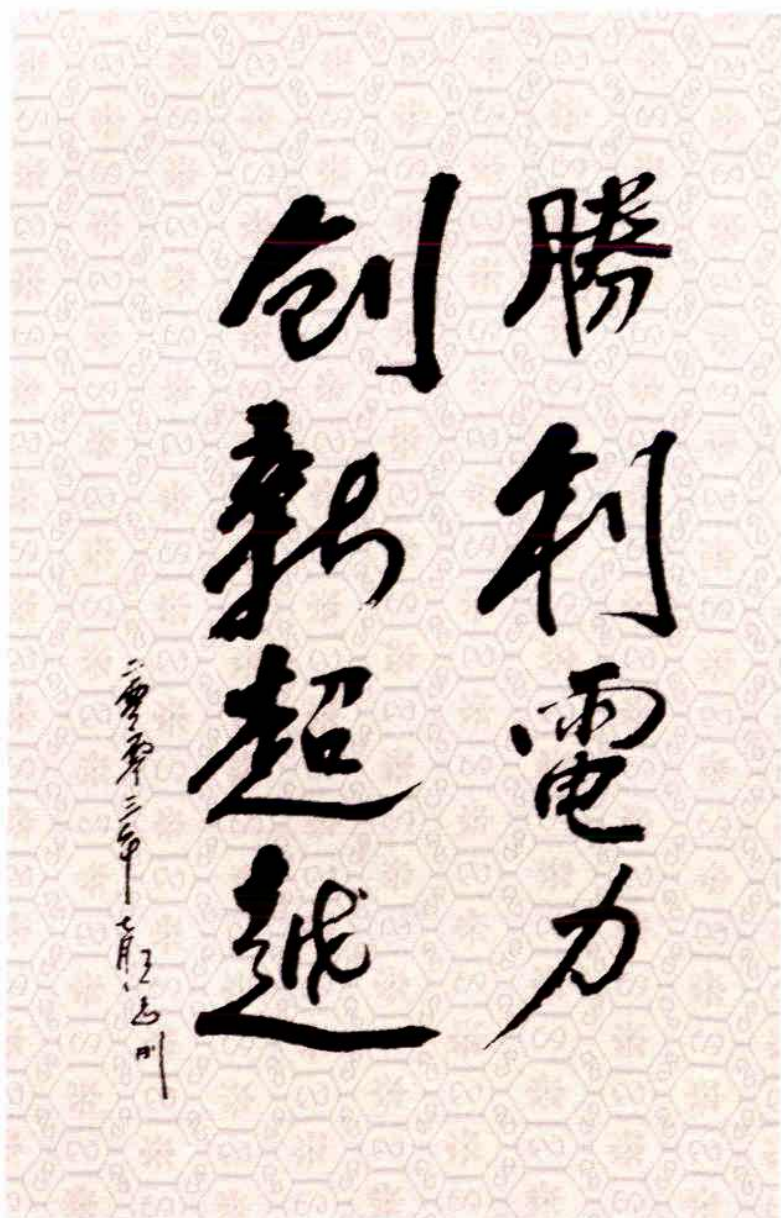 勝利電力
創新超越
二零零三年七月 王志刚